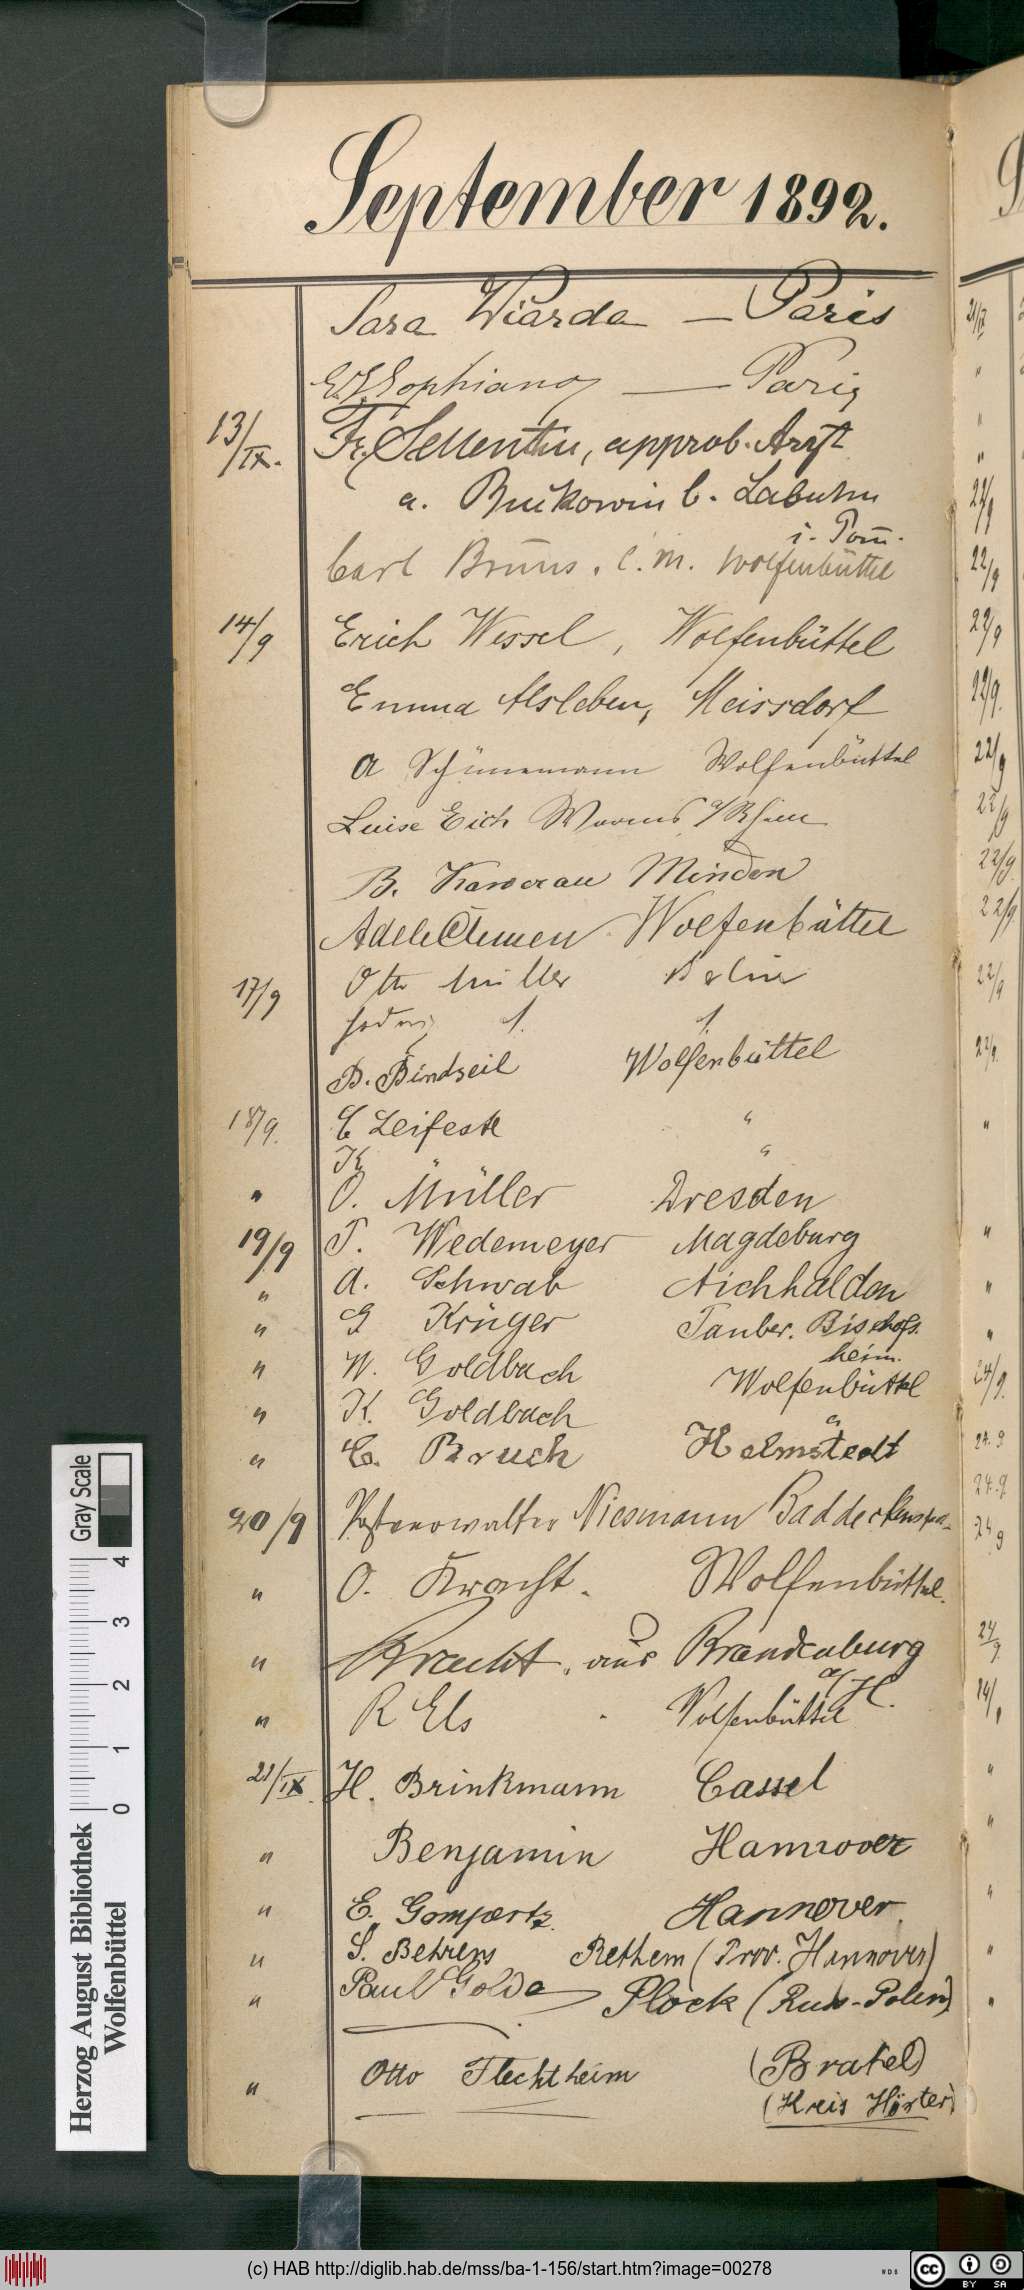 September 1892.
Sara Wiarda — Paris
E. J. Sophianos — Paris
13/IX. Fr. Sellentin, approb. Arzt
a. Buckowin b. Labuhn
i. Pom.
Carl Bruns. C. M. Wolfenbüttel
14/9 Erich Wessel, Wolfenbüttel
Emma Alsleben, Meissdorf
A Schünemann Wolfenbüttel
Luise Eich Worms a/Rhein
B. Kawerau Minden
Adele Clemen Wolfenbüttel
17/9 Otto Müller Berlin
B. Bindseil Wolfenbüttel
18/9. C Leifeste "
K " "
" O. Müller Dresden
19/9 T. Wedemeyer Magdeburg
" A. Schwab Aichhalden
" G Krüger Tauber. Bischofs
heim.
" W. Goldbach Wolfenbüttel
" K. Goldbach "
" C. Bruch Helmstedt
20/9 Postverwalter Niesmann Baddeckenst.
" O. Kracht. Wolfenbüttel.
" Kracht. aus Brandenburg
a/H.
" R Els Wolfenbüttel
21/IX. H. Brinkmann Cassel
" Benjamin Hannover
" E. Gompertz. Hannover
" S. Behrens Rethem (Prov. Hannover)
" Paul Golde Plock (Russ-Polen)
" Otto Flechtheim (Brakel)
(Kreis Höxter)
21/IX
"
"
"
22/9
22/9
22/9
22/9.
22/9
22/9
22/9.
22/9.
22/9
22/9.
"
"
"
"
24/9.
24.9
24.9.
24.9
24/9.
24/9
"
"
"
"
"
Herzog August Bibliothek
Wolfenbüttel
0 1 2 3 4
Gray Scale
(c) HAB http://diglib.hab.de/mss/ba-1-156/start.htm?image=00278
WDB
cc BY SA